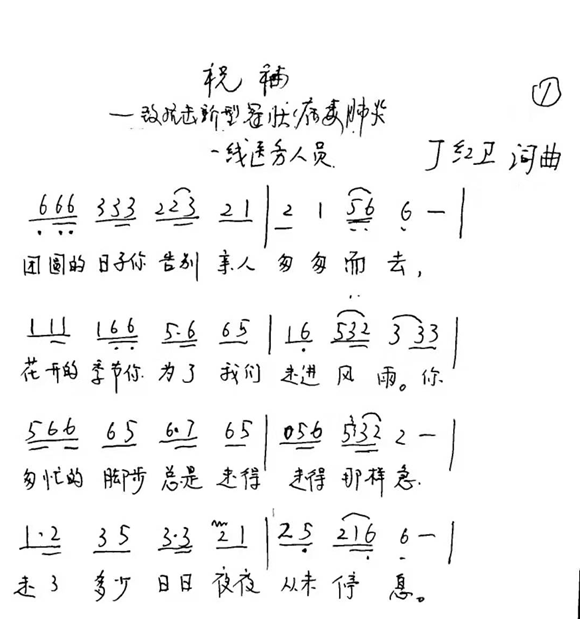 祝福
①
—致抗击新型冠状病毒肺炎
一线医务人员
丁红卫 词曲
666 333 223 21 | 2 1 56 6 — |
团圆的 日子你 告别 亲人 匆匆而去，
111 166 5·6 65 | 16 532 3 33 |
花开的 季节你 为了 我们 走进 风雨。你
566 65 6·7 65 | 056 532 2 — |
匆忙的 脚步 总是 走得 走得 那样急.
1·2 35 3·3 21 | 25 216 6 — |
走了 多少 日日 夜夜 从未 停 息。